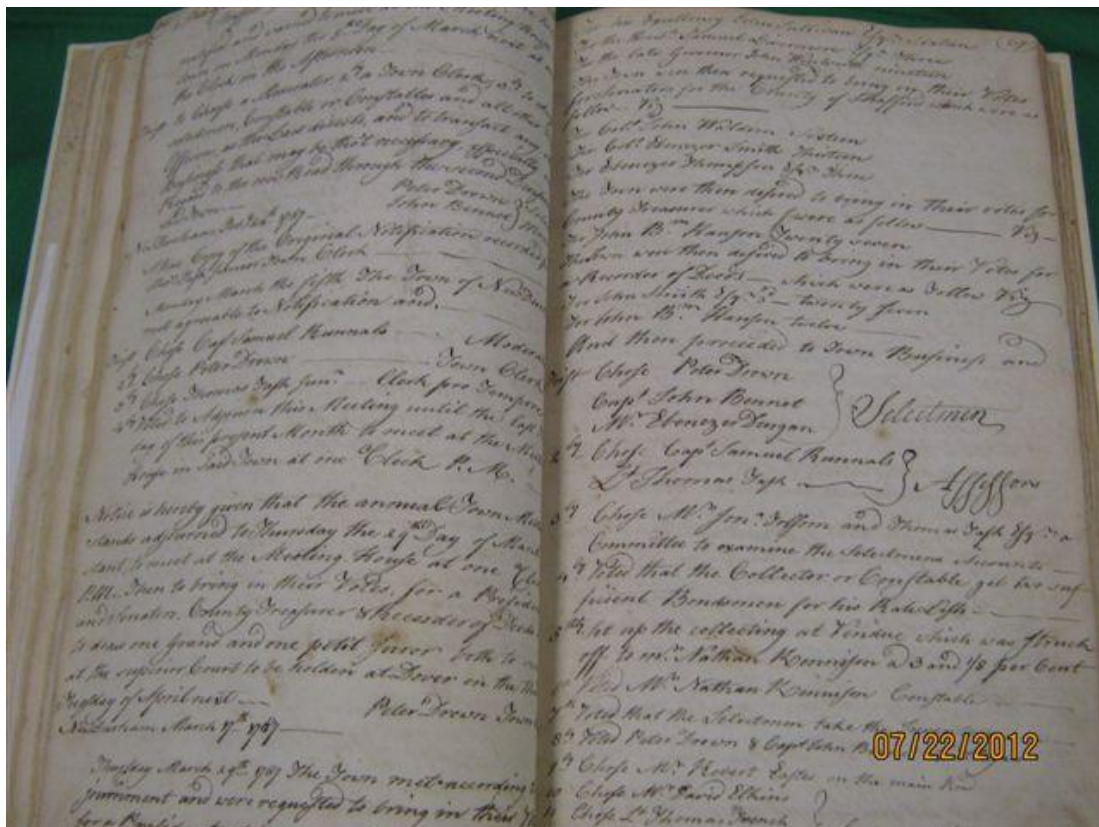 notified and warned to
Town on Monday the Day of March next at
the Clock in the Afternoon
first to Chose a Moderator 2ly a Town Clerk, 3ly to
Selectmen, Constable or Constables and all other
Officers, as the Law directs, and to transact any
Business that may be tho't necessary especially
to the new Road through the second Division
Peter Drown
John Bennet
New Durham Feb 1787
A True Copy of the Original Notification recorded
Thos Tash Junior Town Clerk
Monday March the fifth The Town of New Dur
met agreable to Notification and
first Chose Capt Samuel Runnals Modera
2ly Chose Peter Drown Town Clerk
3ly Chose Thomas Tash Junr Clerk pro Tempore
4ly Voted to Adjourn this Meeting until the last
day of this present Month to meet at the Meet
House in said Town at one oClock P.M.
Notice is hereby given that the annual Town Meet
stands adjourned to Thursday the 29th Day of March
to meet at the Meeting House at one
P.M. Then to bring in their Votes, for a Preside
and Senator, County Treasurer & Recorder of Deeds
to draw one Grand and one petit Juror both to
at the superior Court to be holden at Dover on the
Tuesday of April next
Peter Drown Town
New Durham March 17th 1787
Thursday March 29th 1787 The Town met according
journment and were requested to bring in their
for a Preside
For his Excellency John Sullivan Esqr Sixteen
For the Honl Samuel Livermore Esqr Three
For the late Governor John Wentworth nineteen
The Town were then requested to bring in their Votes
for Senator for the County of Strafford which were as
follow Viz
For Colo John Waldron Sixteen
For Colo Ebenezer Smith Thirteen
For Ebenezer Thompson Esqr Three
The Town were then desired to bring in Their votes for
County Treasurer which were as follow Viz
For John Bm Hanson Twenty seven
The Town were then desired to bring in their Votes for
a Recorder of Deeds which were as Follow Viz
For John Smith Esqr twenty seven
For John Bm Hanson twelve
And then proceeded to Town Business and
first Chose Peter Drown
Capt John Bennet
Mr Ebenezer Durgan
Selectmen
2ly Chose Capt Samuel Runnals
Lt Thomas Tash
Assessors
3ly Chose Mr Jona Folsom and Thomas Tash Esqr a
Committee to examine the Selectmens Accounts
4ly Voted that the Collector or Constable get two suf-
ficient Bondsmen for his Rate Lists
5thly Set up the collecting at Vendue which was struck
off to mr Nathan Kennison a 3 and 1/8 per Cent
Voted Mr Nathan Kinnison Constable
7th Voted that the Selectmen take the
8th Voted Peter Drown & Capt John B
9th Chose Mr Robert Eastes on the main Rod
10 Chose Mr David Elkins
11 Chose Lt Thomas French
07/22/2012